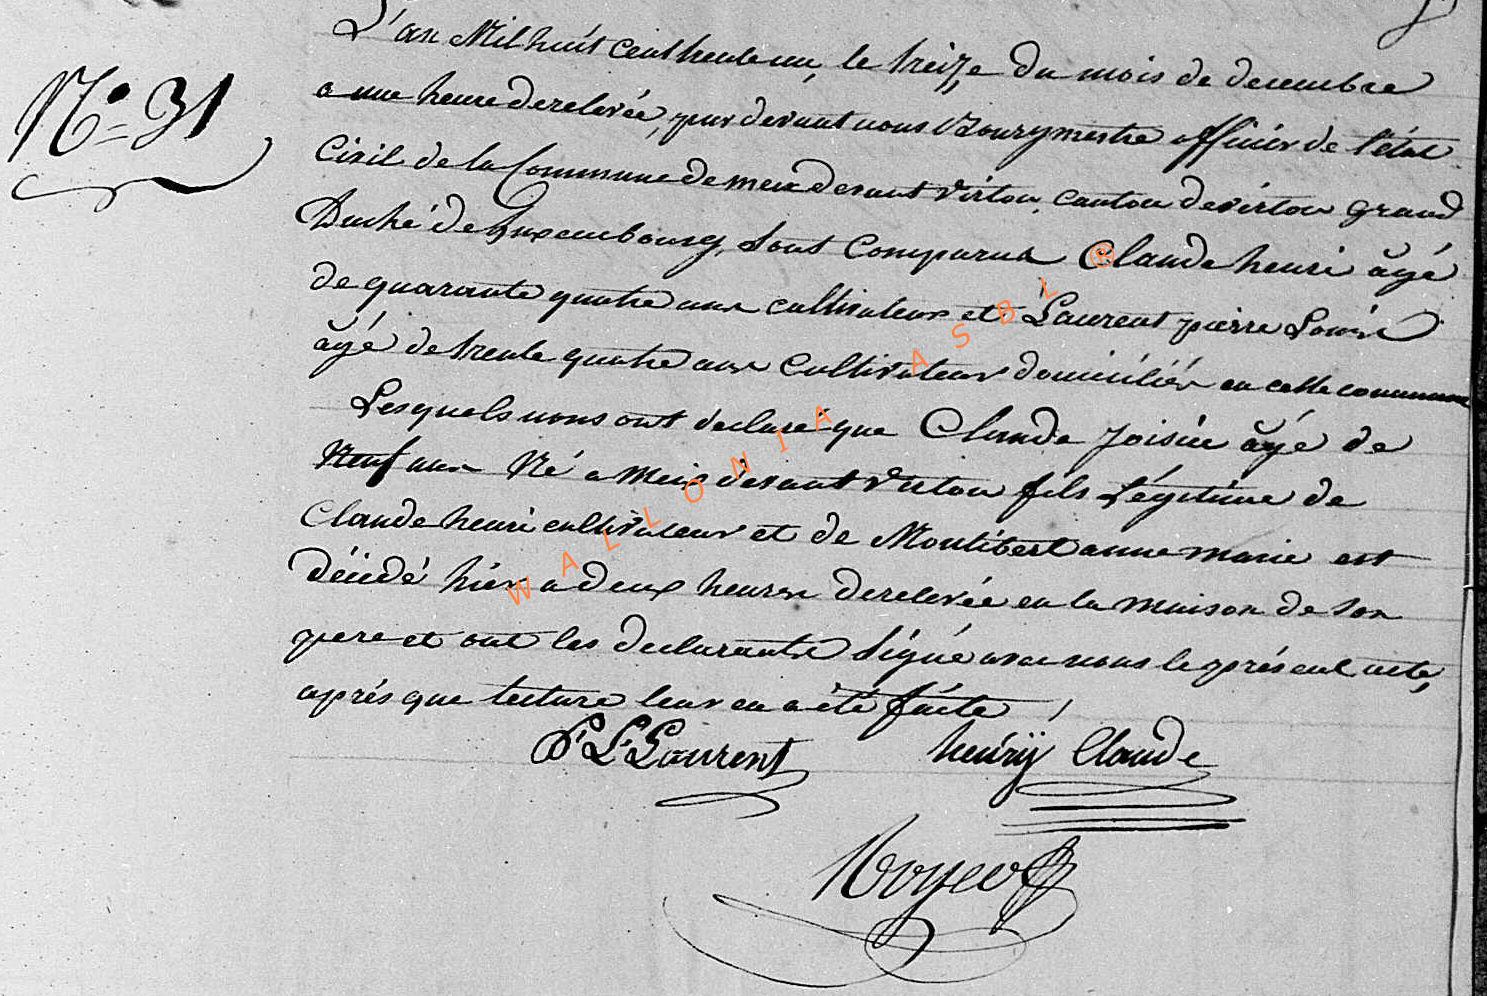 N.o 31
L'an Mil huit cent trente un, le treize du mois de decembre
a une heure de relevée, par devant nous Bourgmestre officier de l'état
Civil de la Commune de meix devant virton, canton de virton grand
Duché de Luxembourg, sont comparus Claude henri âgé
de quarante quatre ans cultivateur et Laurent pierre Louis
âgé de trente quatre ans cultivateur domiciliés en cette commune
Lesquels nous ont declaré que Claude âgé de
Neuf ans Né a Meix devant virton fils Légitime de
Claude henri cultivateur et de Montibert anne marie est
décédé hier a deux heures de relevée en la maison de son
pere et ont les declarants signé avec nous le présent acte,
aprés que lecture leur en a été faite /
P. L. Laurent henrÿ Claude
WALLONIA ASBL ®